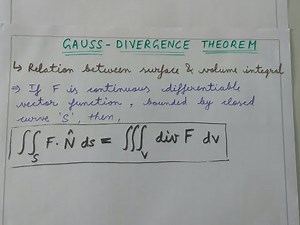 GAUSS - DIVERGENCE THEOREM
↳ Relation between surface & volume integral
⇒ If F is continuous differentiable
vector function, bounded by closed
curve 'S', then,
∬_S F. N̂ ds = ∭_V div F dv